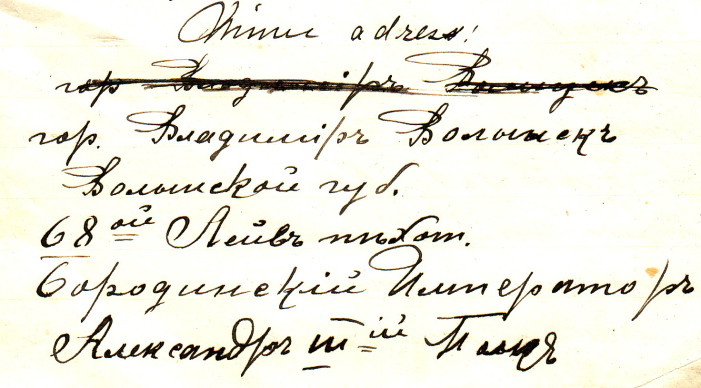 Minu adress!
гор Владиміръ
гор. Владиміръ Волынскъ
Волынской губ.
68ой Лейбъ пѣхот.
Бородинскій Императоръ
Александръ III ій Полкъ